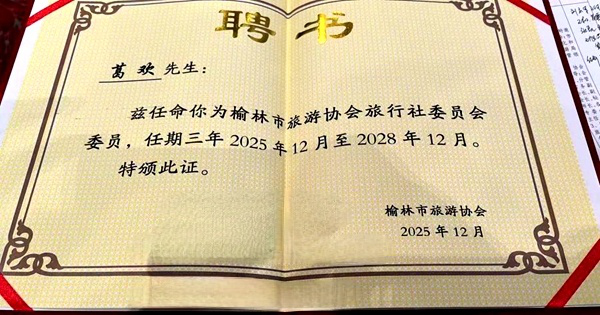 聘书
葛欢 先生：
兹任命你为榆林市旅游协会旅行社委员会
委员，任期三年 2025 年 12 月至 2028 年 12 月。
特颁此证。
榆林市旅游协会
2025 年 12 月